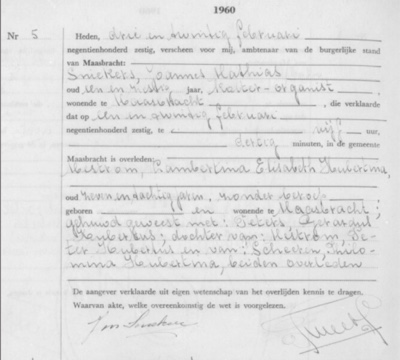 1960
Nr 5 Heden, drie en twintig februari
negentienhonderd zestig, verscheen voor mij, ambtenaar van de burgerlijke stand
van Maasbracht:
Snickers, Joannes Mathias
oud een en zestig jaar, Koster-organist
wonende te Maasbracht, die verklaarde
dat op een en twintig februari
negentienhonderd zestig, te vijf uur,
dertig minuten, in de gemeente
Maasbracht is overleden:
Mestrom, Lambertina Elisabeth Hubertina,
oud zevenentachtig jaren, zonder beroep
geboren en wonende te Maasbracht;
gehuwd geweest met: Peters, Gerardus
Hubertus; dochter van: Mestrom, Pe-
ter Hubertus en van: Scheeren, Philo-
mina Hubertina, beiden overleden
De aangever verklaarde uit eigen wetenschap van het overlijden kennis te dragen.
Waarvan akte, welke overeenkomstig de wet is voorgelezen.